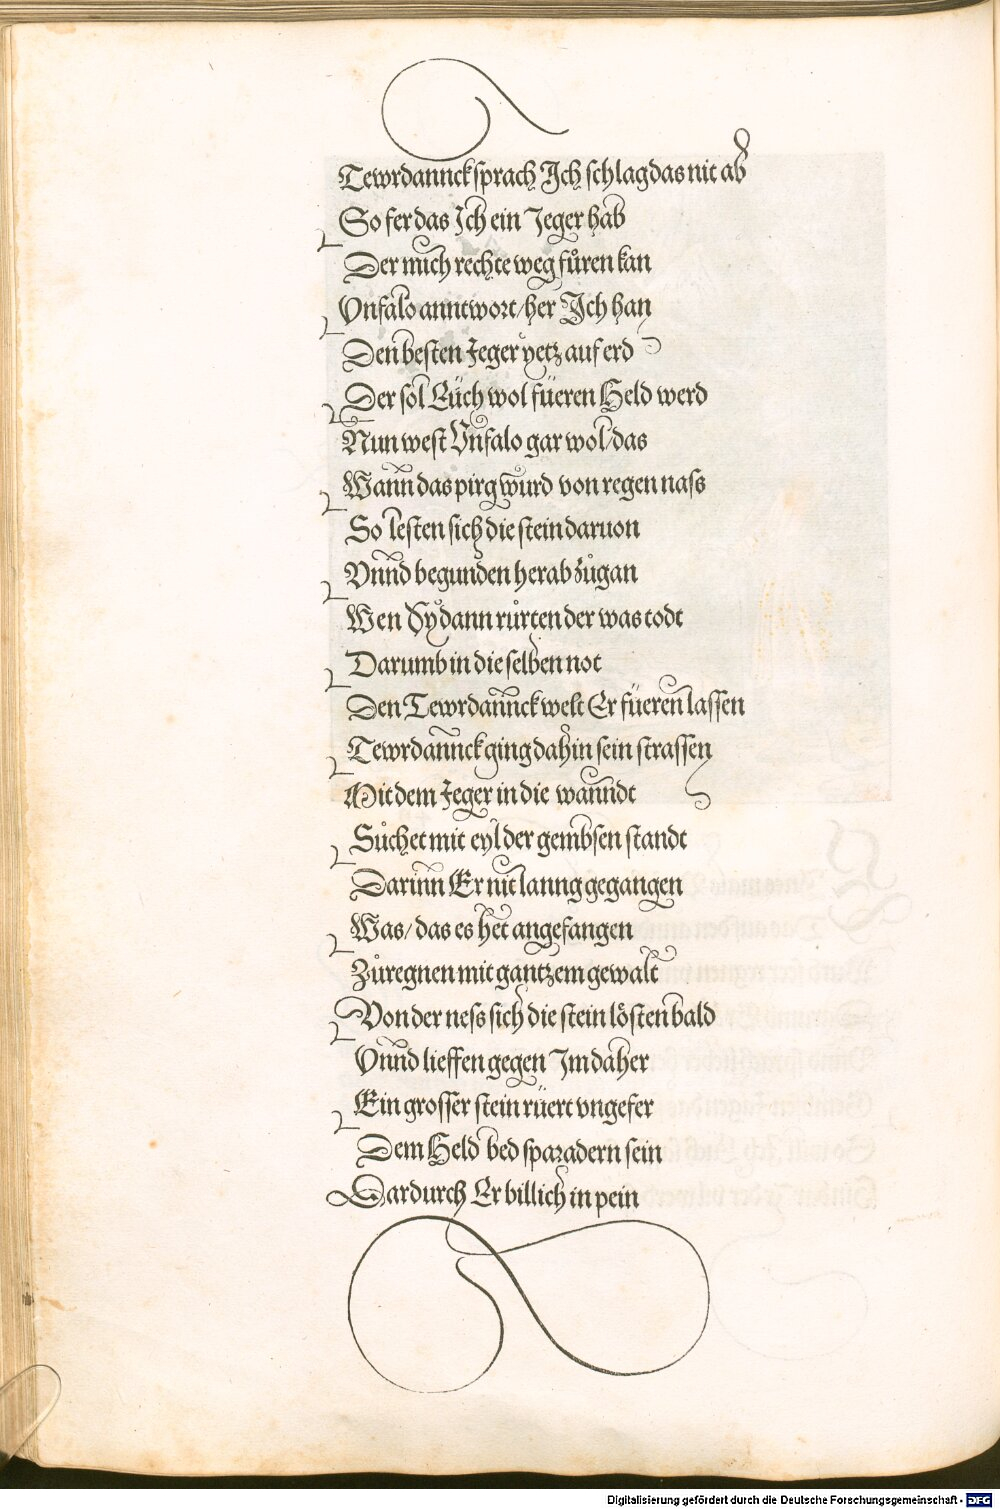 Tewrdannck sprach Ich schlag das nit ab
So fer das Ich ein Jeger hab
Der mich rechte weg fůren kan
Vnfalo anntwort/her Ich han
Den besten Jeger yetz auf erd
Der sol Eüch wol füeren Held werd
Nun west Vnfalo gar wol/das
Wann das pirg wurd von regen nass
So lesten sich die stein daruon
Vnnd begunden herab zůgan
Wen Sy dann růrten der was todt
Darumb in die selben not
Den Tewrdannck welt Er füeren lassen
Tewrdannck ging dahin sein strassen
Mit dem Jeger in die wanndt
Sůchet mit eyl der gembsen standt
Darinn Er nit lanng gegangen
Was/ das es het angefangen
Zůregnen mit gantzem gewalt
Von der ness sich die stein lösten bald
Vnnd lieffen gegen Im daher
Ein grosser stein rüert vngefer
Dem Held bed sparadern sein
Dardurch Er billich in pein
Digitalisierung gefördert durch die Deutsche Forschungsgemeinschaft - DFG